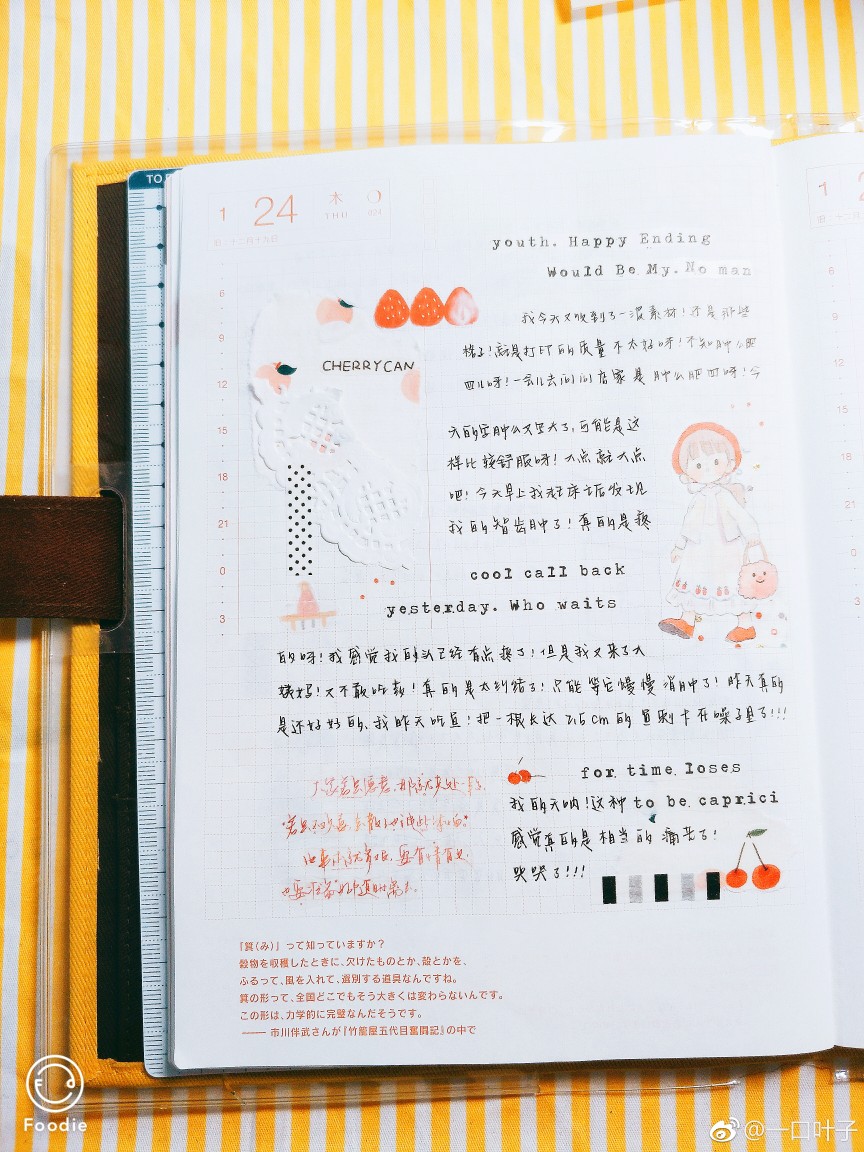 TO
1 24 木
THU 024
旧・十二月十九日
youth. Happy Ending
Would Be My. No man
6
9
12
15
18
21
0
3
CHERRYCAN
我今天又收到了一波素材!还是那些
梯子!就是打印的质量不太好呀!不知肿么肥
四儿呀!一会儿去问问店家是肿么肥四呀!今
天的字肿么又变大了,可能是这
样比较舒服呀!大点就大点
吧!今天早上我起床后发现
我的智齿肿了!真的是疼
cool call back
yesterday. Who waits
的呀!我感觉我的头已经有点疼了!但是我又来了大
姨妈!又不敢吃药!真的是太纠结了!只能等它慢慢消肿了!昨天真的
是还好好的、我昨天吃鱼!把一根长达2.5cm的鱼刺卡在嗓子里了!!!
for time loses
我的天呐!这种 to be caprici
感觉真的是相当的痛苦了!
哭哭了!!!
『箕(み)』って知っていますか?
穀物を収穫したときに、欠けたものとか、殻とかを、
ふるって、風を入れて、選別する道具なんですね。
箕の形って、全国どこでもそう大きくは変わらないんです。
この形は、力学的に完璧なんだそうです。
—— 市川伴武さんが『竹籠屋五代目奮闘記』の中で
1
6
9
12
15
18
21
0
3
Foodie
@一口叶子